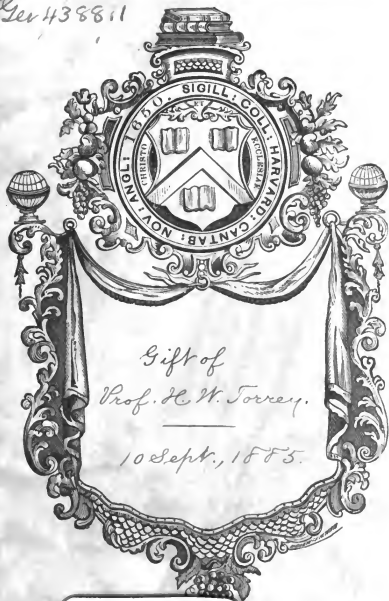 Ger 4388.11
SIGILL: COLL: HARVARD: CANTAB: NOV: ANGL: 1650.
ET
CHRISTO
ECCLESIAE
Gift of
Prof. H. W. Torrey.
10 Sept., 1885.